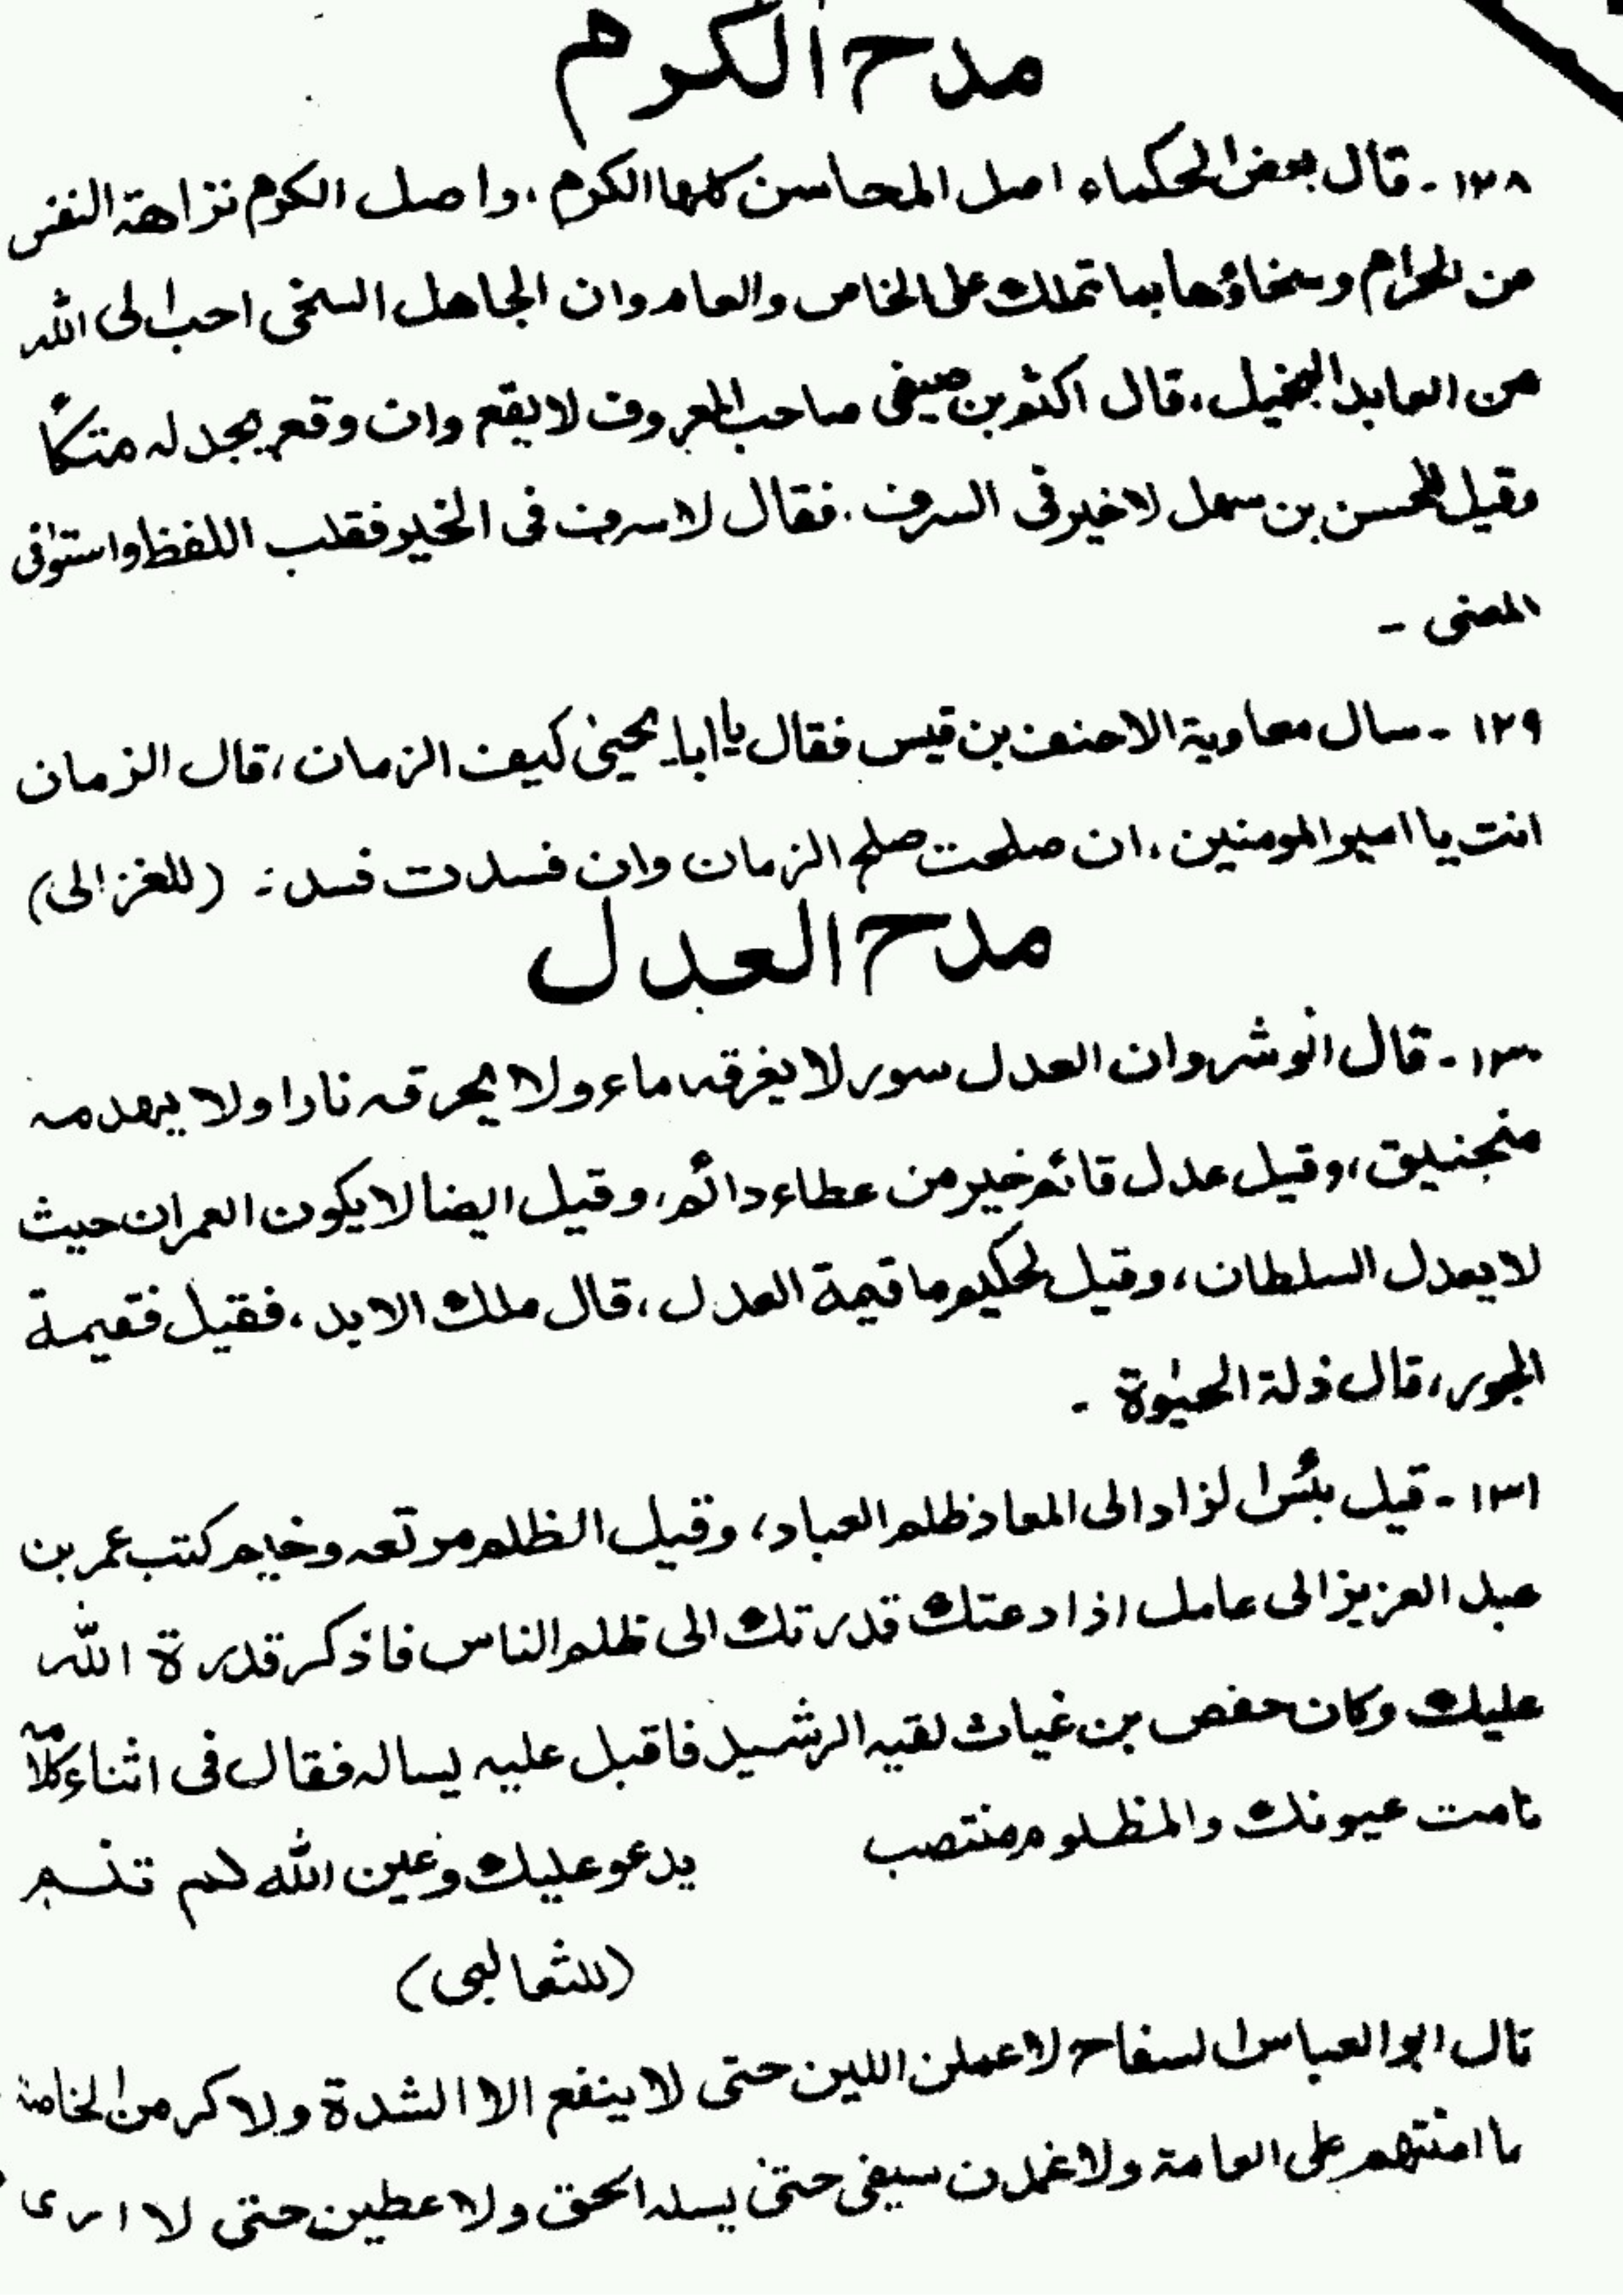 مدح الكرم
۱۲۸ - قال بعض الحكماء اصل المحاسن كلها الكرم ، واصل الكرم نزاهة النفس
من الحرام وسخاؤها بما تملك على الخاص والعام وان الجاهل السخى احب الى الله
من العابد البخيل ، قال اكثم بن صيفى صاحب المعروف لا يقع وان وقع يجد له متكأ
وقيل للحسن بن سهل لا خير فى السرف . فقال لا سرف فى الخير فقلب اللفظ واستوفى
المعنى -
۱۲۹ - سال معاوية الاحنف بن قيس فقال يا ابا يحيىٰ كيف الزمان ، قال الزمان
انت يا امير المومنين ، ان صلحت صلح الزمان وان فسدت فسد : (للغزالى)
مدح العدل
۱۳۰ - قال انوشروان العدل سور لا يغرقه ماء ولا يحرقه نارا ولا يهدمه
منجنيق ، وقيل عدل قائم خير من عطاء دائم ، وقيل ايضا لا يكون العمران حيث
لا يعدل السلطان ، وقيل لحكيم ما قيمة العدل ، قال ملك الابد ، فقيل فقيمة
الجور ، قال ذلة الحيٰوة -
۱۳۱ - قيل بئس الزاد الى المعاد ظلم العباد ، وقيل الظلم مرتعه وخيم كتب عمر بن
عبد العزيز الى عامل اذا دعتك قدرتك الى ظلم الناس فاذكر قدرة الله
عليك وكان حفص بن غياث لقيه الرشيد فاقبل عليه يساله فقال فى اثناء كلامه
نامت عيونك والمظلوم منتصب يدعو عليك وعين الله لم تنم
(للثعالبى)
قال ابو العباس السفاح لاعملن اللين حتى لا ينفع الا الشدة ولاكرمن الخاصة
ما امنتهم على العامة ولاغمدن سيفى حتىٰ يسله الحق ولاعطين حتى لا ارى